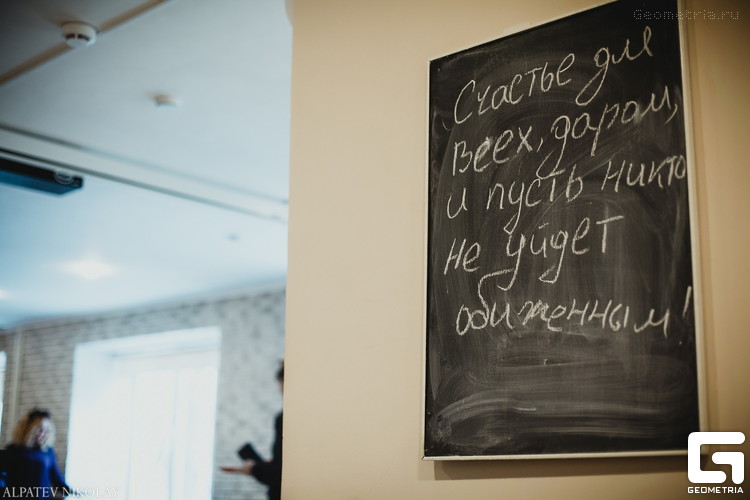 Geometria.ru
Счастье для
всех, даром,
и пусть никто
не уйдет
обиженным!
ALPATEV NIKOLAY
GEOMETRIA